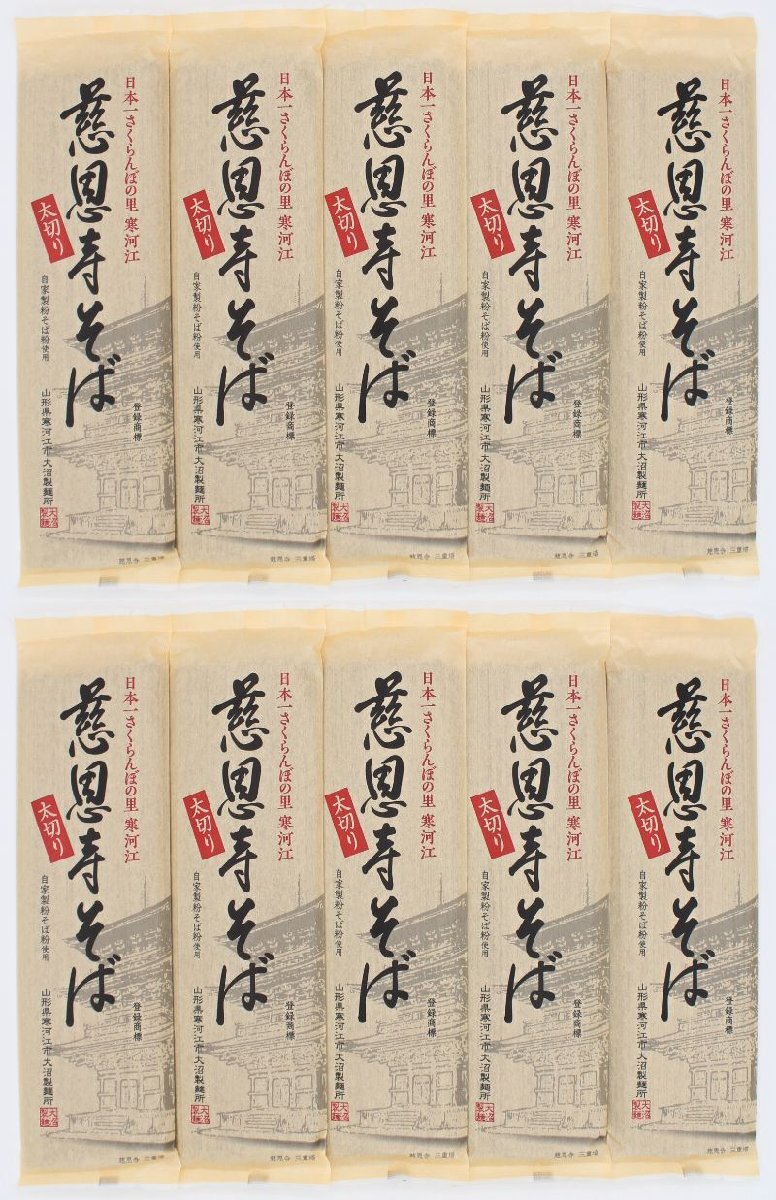 日本一さくらんぼの里 寒河江
慈恩寺そば
太切り
自家製粉そば粉使用
登録商標
山形県寒河江市 大沼製麺所
大沼製麺
慈恩寺 三重塔
日本一さくらんぼの里 寒河江
慈恩寺そば
太切り
自家製粉そば粉使用
登録商標
山形県寒河江市 大沼製麺所
大沼製麺
慈恩寺 三重塔
日本一さくらんぼの里 寒河江
慈恩寺そば
太切り
自家製粉そば粉使用
登録商標
山形県寒河江市 大沼製麺所
大沼製麺
慈恩寺 三重塔
日本一さくらんぼの里 寒河江
慈恩寺そば
太切り
自家製粉そば粉使用
登録商標
山形県寒河江市 大沼製麺所
大沼製麺
慈恩寺 三重塔
日本一さくらんぼの里 寒河江
慈恩寺そば
太切り
自家製粉そば粉使用
登録商標
山形県寒河江市 大沼製麺所
大沼製麺
慈恩寺 三重塔
日本一さくらんぼの里 寒河江
慈恩寺そば
太切り
自家製粉そば粉使用
登録商標
山形県寒河江市 大沼製麺所
大沼製麺
慈恩寺 三重塔
日本一さくらんぼの里 寒河江
慈恩寺そば
太切り
自家製粉そば粉使用
登録商標
山形県寒河江市 大沼製麺所
大沼製麺
慈恩寺 三重塔
日本一さくらんぼの里 寒河江
慈恩寺そば
太切り
自家製粉そば粉使用
登録商標
山形県寒河江市 大沼製麺所
大沼製麺
慈恩寺 三重塔
日本一さくらんぼの里 寒河江
慈恩寺そば
太切り
自家製粉そば粉使用
登録商標
山形県寒河江市 大沼製麺所
大沼製麺
慈恩寺 三重塔
日本一さくらんぼの里 寒河江
慈恩寺そば
太切り
自家製粉そば粉使用
登録商標
山形県寒河江市 大沼製麺所
大沼製麺
慈恩寺 三重塔